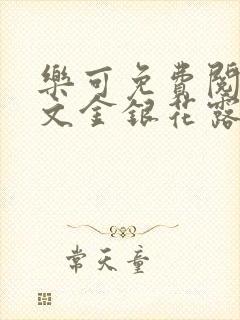 樂可免費閱
文金銀花露
常天童